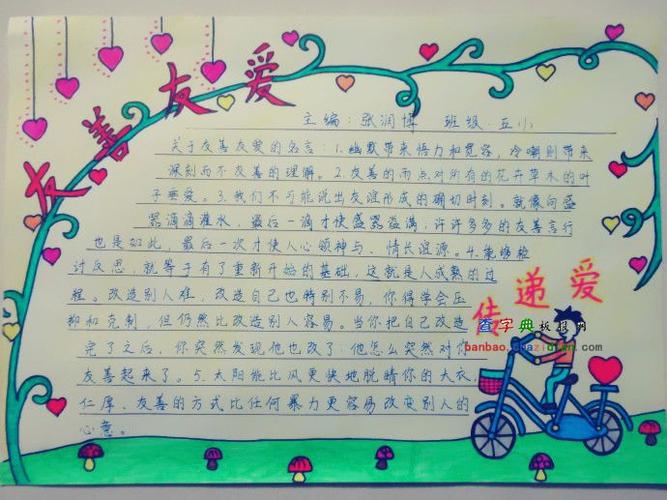 友善友爱
主编：张润博 班级：五小
关于友善友爱的名言：1.幽默带来悟力和宽容，冷嘲则带来
深刻而不友善的理解。2.友善的雨点对所有的花卉草木的叶
子垂爱。3.我们不可能说出友谊形成的确切时刻。就像向盛
器滴滴灌水，最后一滴才使盛器溢满，许许多多的友善言行
也是如此，最后一次才使人心领神与、情长谊源。4.能够检
讨反思，就等于有了重新开始的基础，这就是人成熟的过
程。改造别人难，改造自己也特别不易，你得学会压
抑和克制，但仍然比改造别人容易。当你把自己改造
完了之后，你突然发现他也改了：他怎么突然对你
友善起来了。5.太阳能比风更快地脱睛你的大衣，
仁厚、友善的方式比任何暴力更容易改变别人的
心意。
传递爱
查字典板报网
banbao.chazidian.com